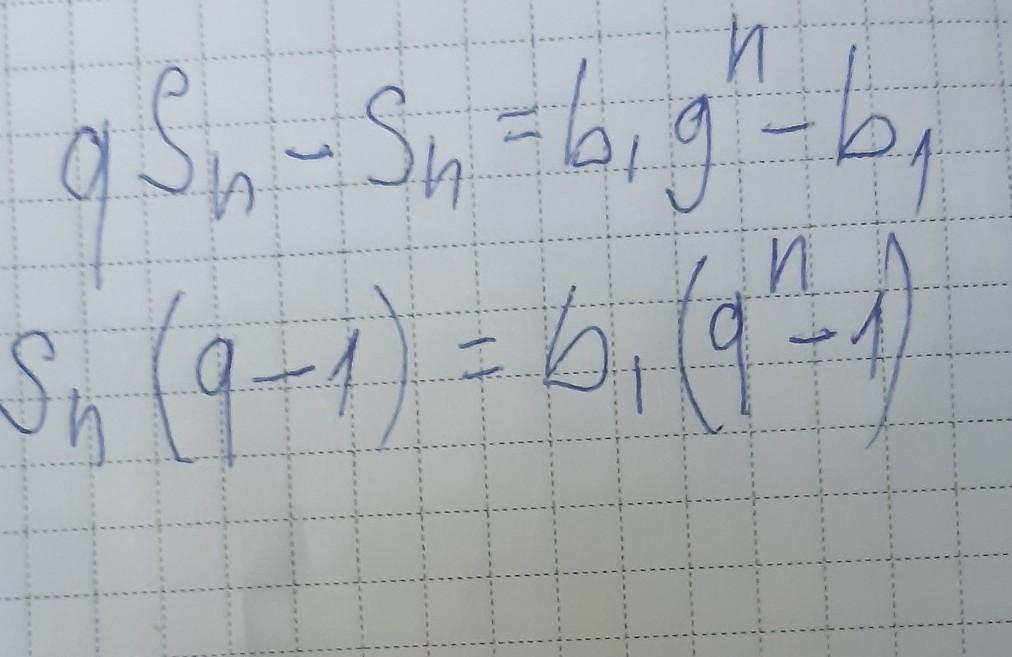 qSₙ - Sₙ = b₁qⁿ - b₁
Sₙ(q - 1) = b₁(qⁿ - 1)